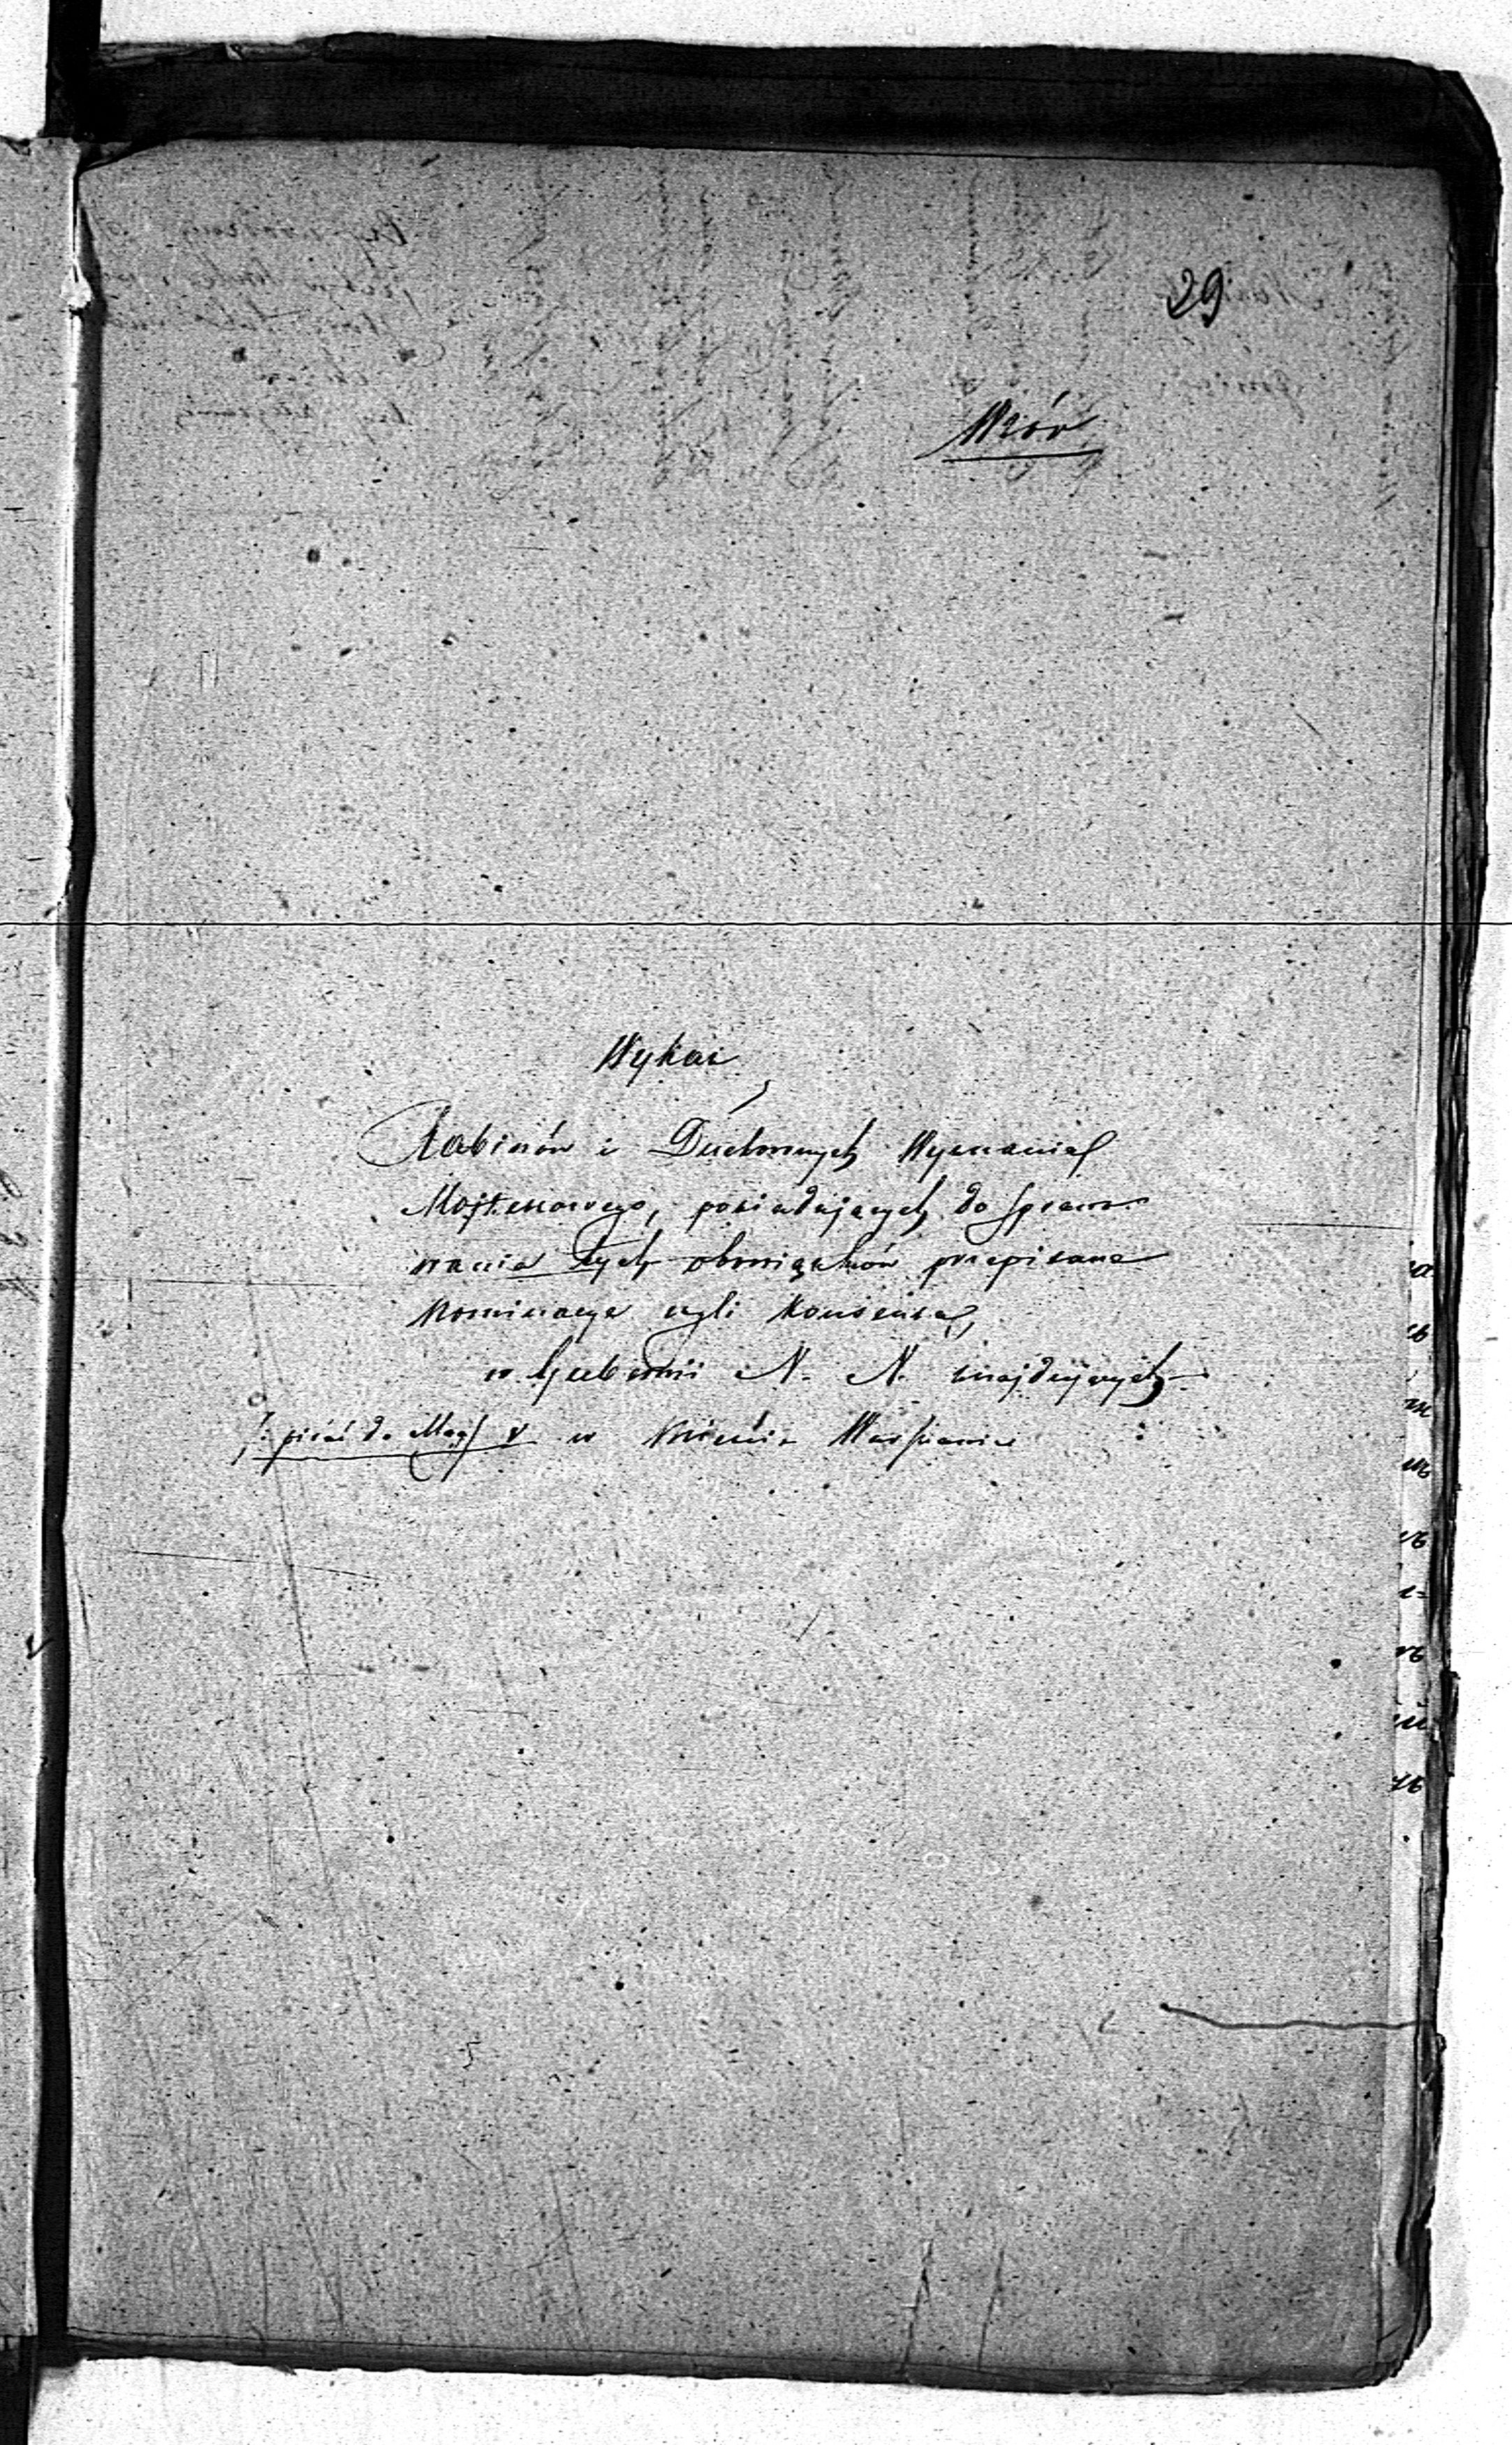 29
Wzór
Wykaz
Rabinów i Duchownych Wyznania
Mojżeszowego, posiadających do spraw-
wania tych obowiązków przepisane
Nominacye czyli Konsensa,
w Gubernii N. N. znajdujących
/: pisać do Mag: w Mieście Warszawie